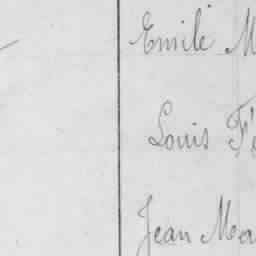 Emile M
Louis F
Jean Ma